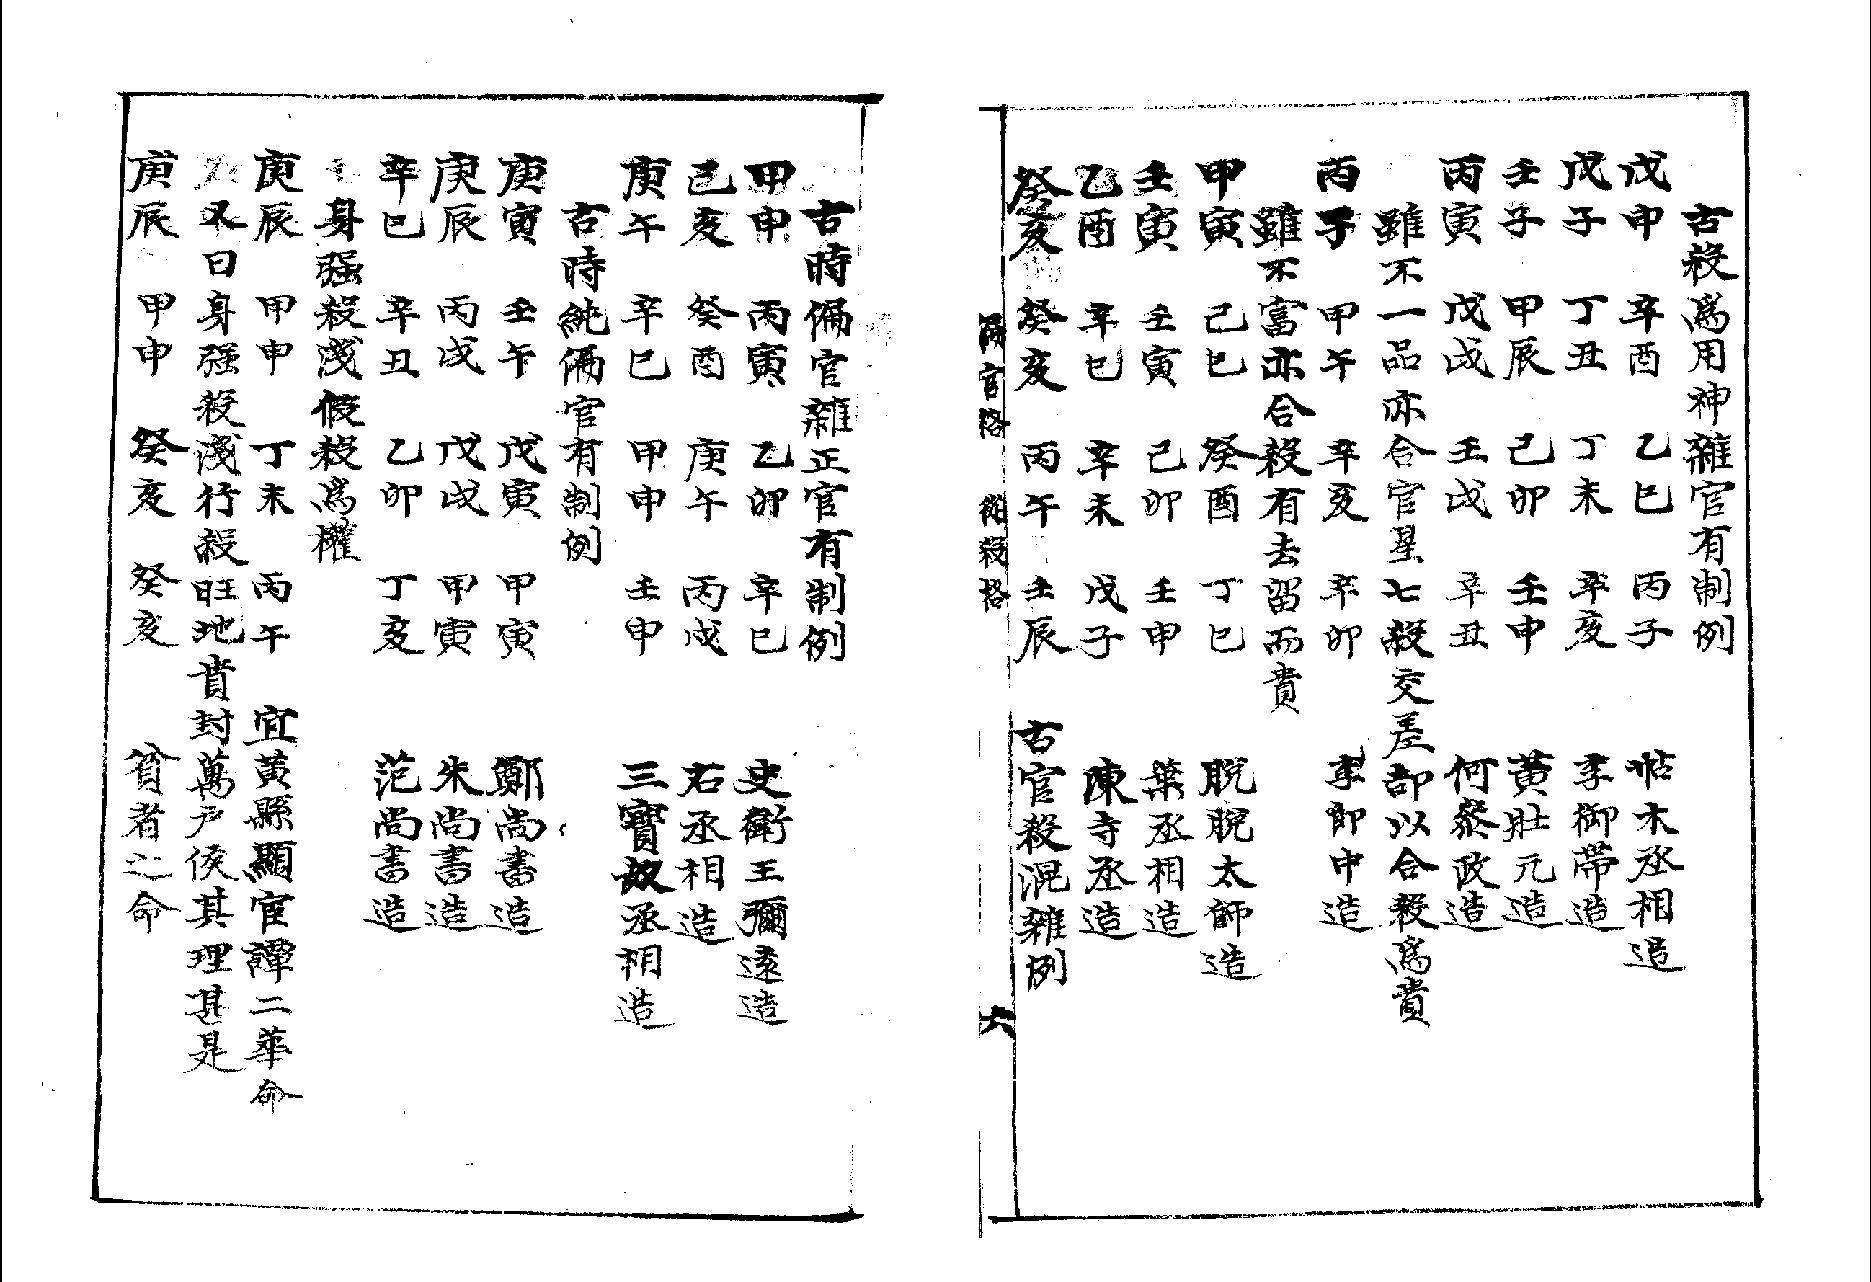 古殺爲用神雜官有制例
戊申 辛酉 乙巳 丙子 帖木丞相造
戊子 丁丑 丁未 辛亥 李御帶造
壬子 甲辰 己卯 壬申 黃壯元造
丙寅 戊戌 壬戌 辛丑 何叅政造
雖不一品亦合官星七殺交差却以合殺爲貴
丙子 甲午 辛亥 辛卯 李郎中造
雖不富亦合殺有去畄而貴
甲寅 己巳 癸酉 丁巳 脫脫太師造
壬寅 壬寅 己卯 壬申 葉丞相造
乙酉 辛巳 辛未 戊子 陳寺丞造
癸亥 癸亥 丙午 壬辰 古官殺混雜例
偏官格 從殺格 六
古時偏官雜正官有制例
甲申 丙寅 乙卯 辛巳 史衛王彌遠造
己亥 癸酉 庚午 丙戌 右丞相造
庚午 辛巳 甲申 壬申 三寶奴丞相造
古時純偏官有制例
庚寅 壬午 戊寅 甲寅 鄭尚書造
庚辰 丙戌 戊戌 甲寅 朱尚書造
辛巳 辛丑 乙卯 丁亥 范尚書造
身强殺淺假殺爲權
庚辰 甲申 丁未 丙午 宜黃縣顯官譚二華命
又曰身强殺淺行殺旺地貴封萬戶侯其理甚是
庚辰 甲申 癸亥 癸亥 貧者之命